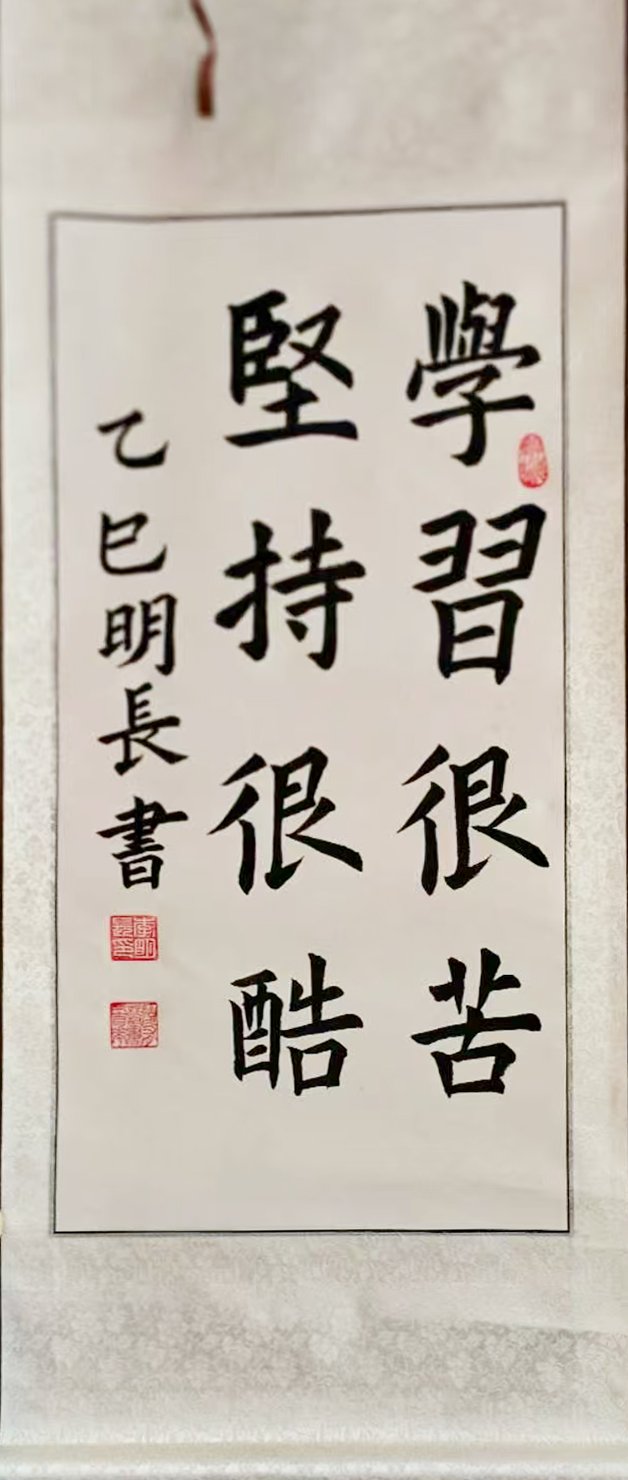 學習很苦
堅持很酷
乙巳明長書